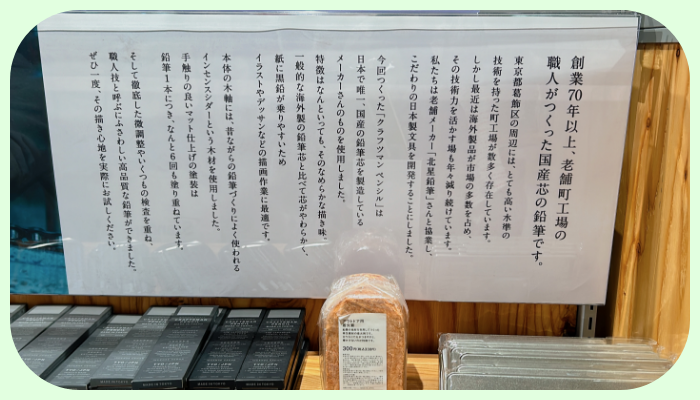 創業70年以上、老舗町工場の
職人がつくった国産芯の鉛筆です。
東京都葛飾区の周辺には、とても高い水準の
技術を持った町工場が数多く存在しています。
しかし最近は海外製品が市場の多数を占め、
その技術力を活かす場も年々減り続けています。
私たちは老舗メーカー「北星鉛筆」さんと協業し、
こだわりの日本製文具を開発することにしました。
今回つくった「クラフツマンペンシル」は
日本で唯一、国産の鉛筆芯を製造している
メーカーさんのものを使用しました。
特徴はなんといっても、そのなめらかな描き味、
一般的な海外製の鉛筆芯と比べて芯がやわらかく、
紙に黒鉛が乗りやすいため
イラストやデッサンなどの描画作業に最適です。
本体の木軸には、昔ながらの鉛筆づくりによく使われる
インセンスシダーという木材を使用しました。
手触りの良いマット仕上げの塗装は
鉛筆1本につき、なんと6回も塗り重ねています。
そして徹底した微調整やいくつもの検査を重ね、
職人技と呼ぶにふさわしい高品質な鉛筆ができました。
ぜひ一度、その描き心地を実際にお試しください。
300円